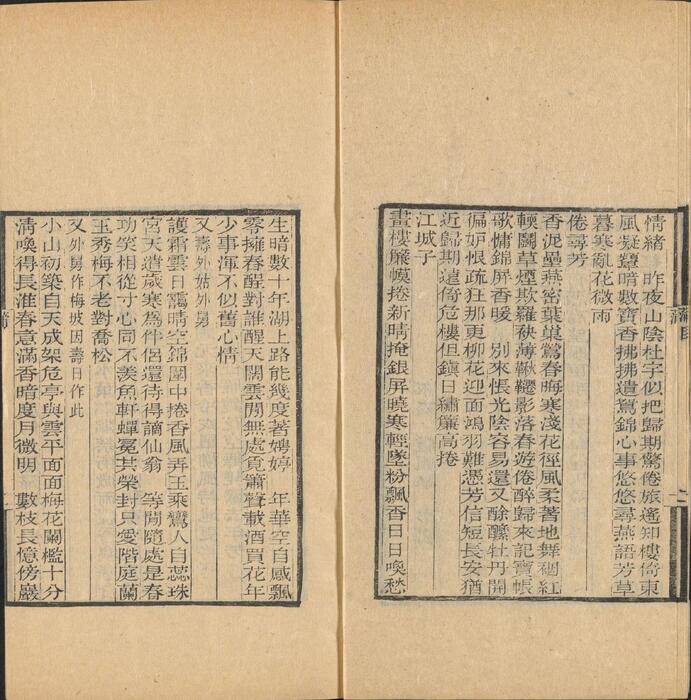 情緒　昨夜山陰杜宇似把歸期驚倦旅遙知樓倚東
風凝顰暗數寶香拂拂遺鴛錦心事悠悠尋燕語芳草
暮寒亂花微雨
倦尋芳
香泥壘燕密葉巢鶯春晦寒淺花徑風柔著地舞裀紅
輭鬭草煙欺羅袂薄鞦韆影落春遊倦醉歸來記寶帳
歌慵錦屏香暖　別來悵光陰容易還又酴醾牡丹開
徧妒恨疏狂那更柳花迎面鴻羽難憑芳信短長安猶
近歸期遠倚危樓但鎮日繡簾高捲
江城子
畫樓簾幙捲新晴掩銀屏曉寒輕墜粉飄香日日喚愁
生暗數十年湖上路能幾度著娉婷　年華空自感飄
零擁春酲對誰醒天闊雲閒無處覓簫聲載酒買花年
少事渾不似舊心情
又壽外姑外舅
護霜雲日靄晴空錦圍中捲香風弄玉乘鸞人自蕊珠
宮天遣歲寒為伴侶還待得謫仙翁　等閒隨處是春
功笑相從寸心同不羨魚軒蟬冕其榮封只愛階庭蘭
玉秀梅不老對喬松
又外舅作梅坡因壽日作此
小山初築自天成架危亭與雲平面面梅花闌檻十分
淸喚得長淮春意滿香暗度月微明　數枝長憶傍巖